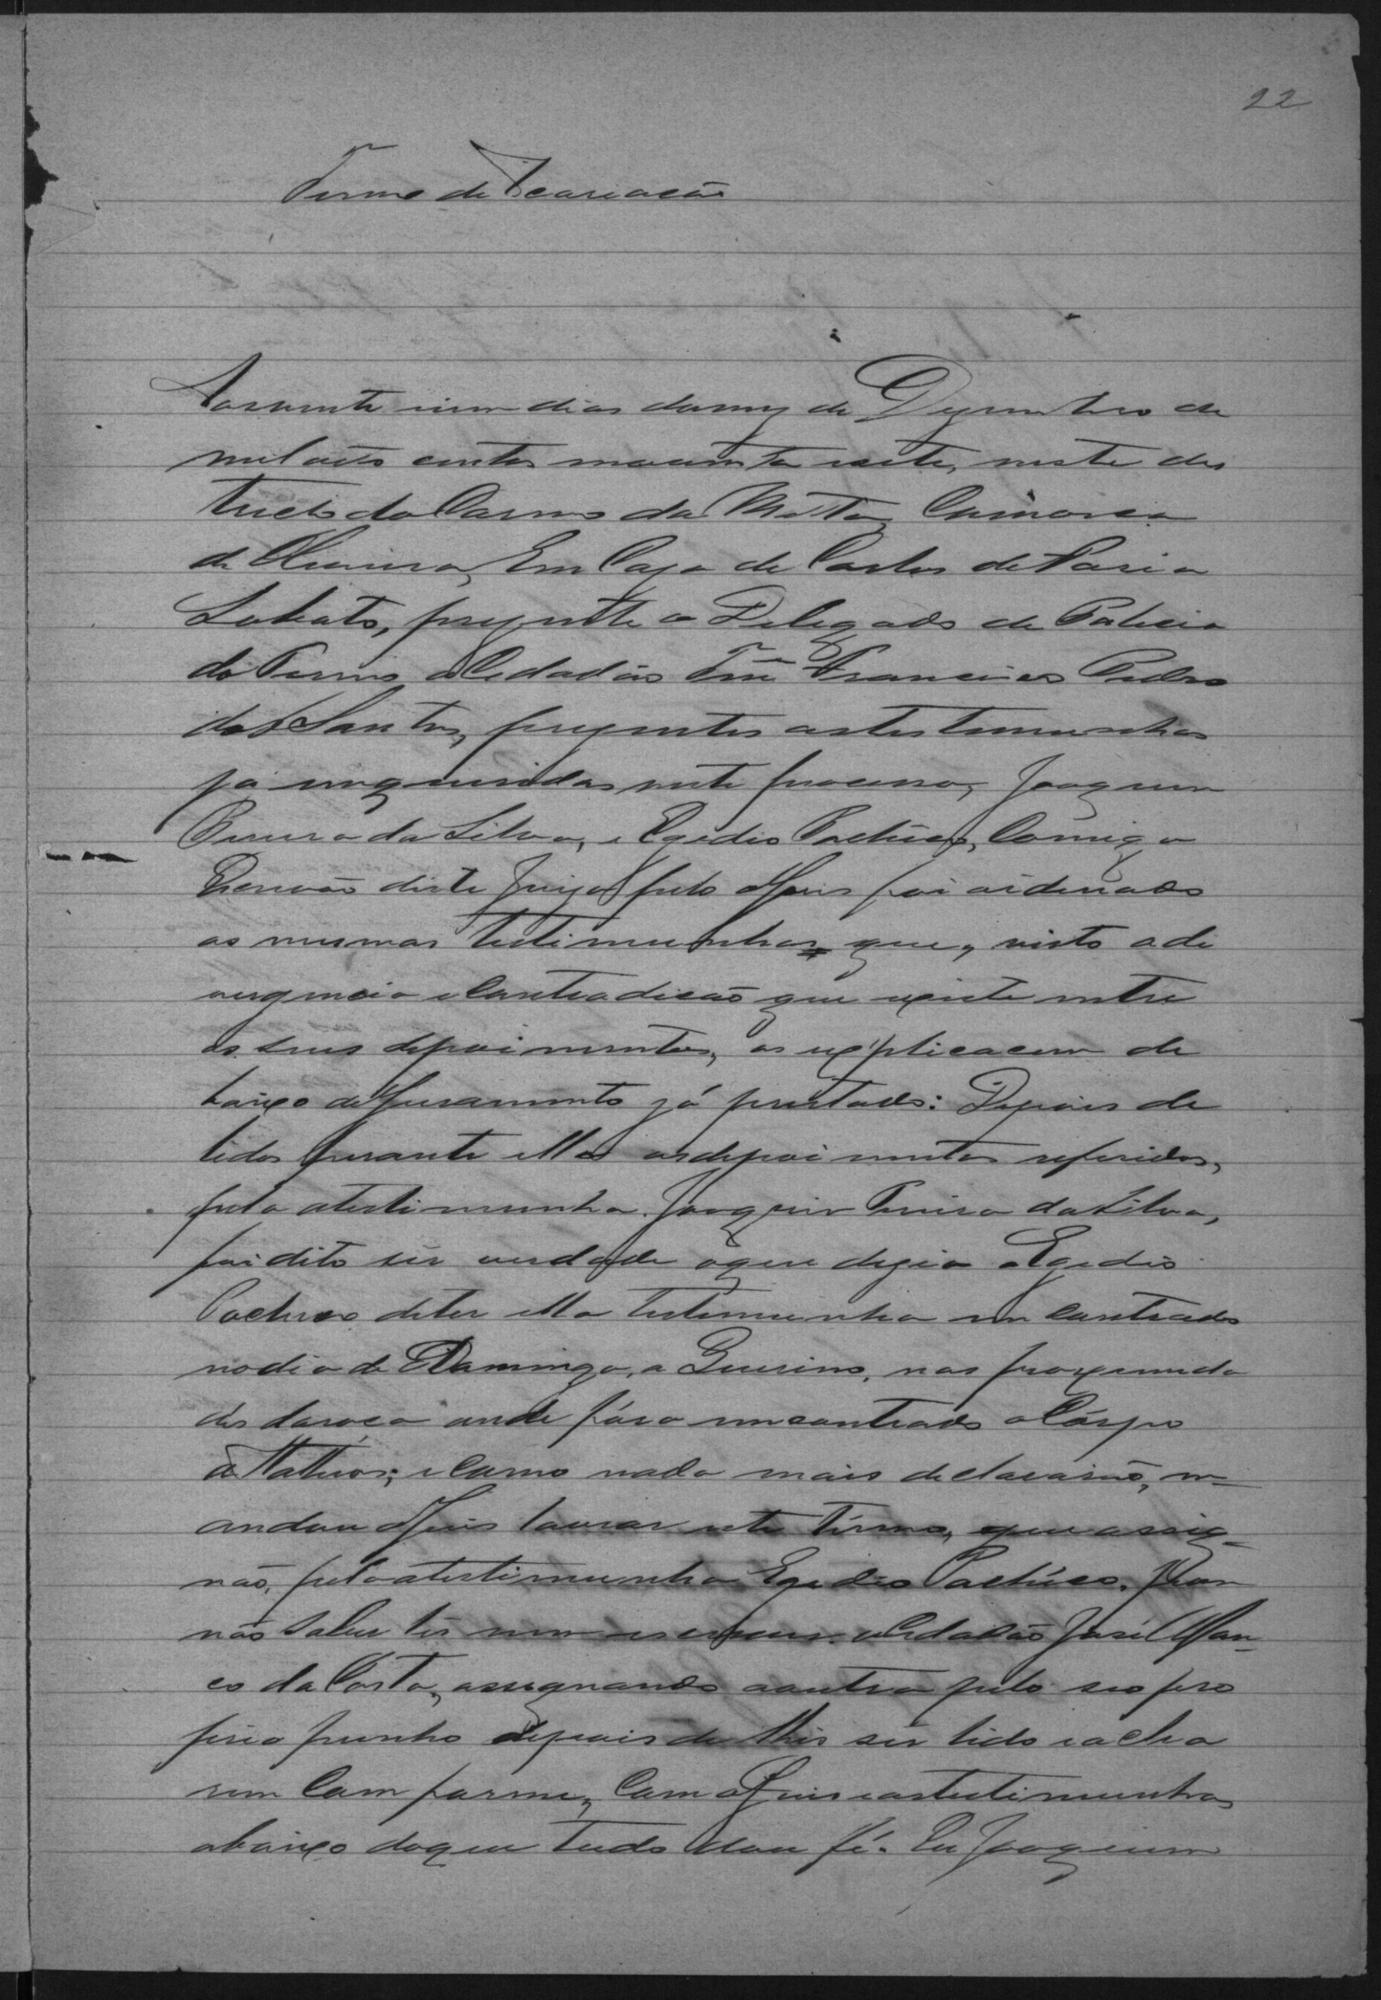 22
Termo de Acareação
Aos vinte e um dias do mez de Dezembro de
mil oito centos noventa e sete, neste dis
tricto do Carmo da Matta, Comarca
de Oliveira, Em Caza de Carlos de Faria
Lobato, prezente o Delegado de Policia
do Termo o Cidadão Tte Francisco Pedro
dos Santos, prezentes as testemunhas
já inqueridas neste processo, Joaquim
Pereira da Silva, e Egidio Pacheco, Comigo
Escrivão deste Juizo pelo Juis foi ordenado
as mesmas testimunhas que, visto a di
vergencia e Contradicão que existe entre
os seus depoimentos, os explicacem de
baixo do Juramento já prestado: Depois de
lidos perante ellas os depoimentos referidos,
pela a testimunha Joaquim Pereira da Silva,
foi dito ser verdade o que dezia o Egidio
Pacheco de ter ella testimunha em contrado
no dia de Domingo, a Guerino, nas proximida
des da roça onde fôra encontrado o Côrpo
de Matheos; e Como nada mais declararão, m
andou o Juis lavrar este têrmo, que assig
não, pela a testimunha Egidio Pachêco, por
não saber ler nem escrever o Cidadão José
co da Costa, assignando a outra pelo seo pro
prio punho depois de lhes ser lido e acha
rem Com forme, Com o Juis e as testimunhas
abaixo do que tudo dou fé. Eu Joaquim